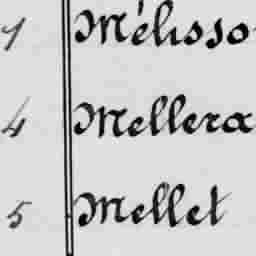 1 Mélisso
4 Mellera
5 Mellet